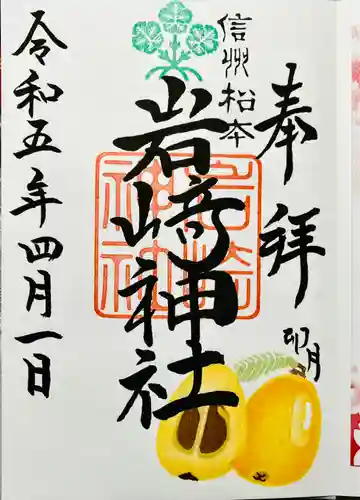 奉拝
卯月
信州松本
岩﨑神社
岩崎神社
令和五年四月一日